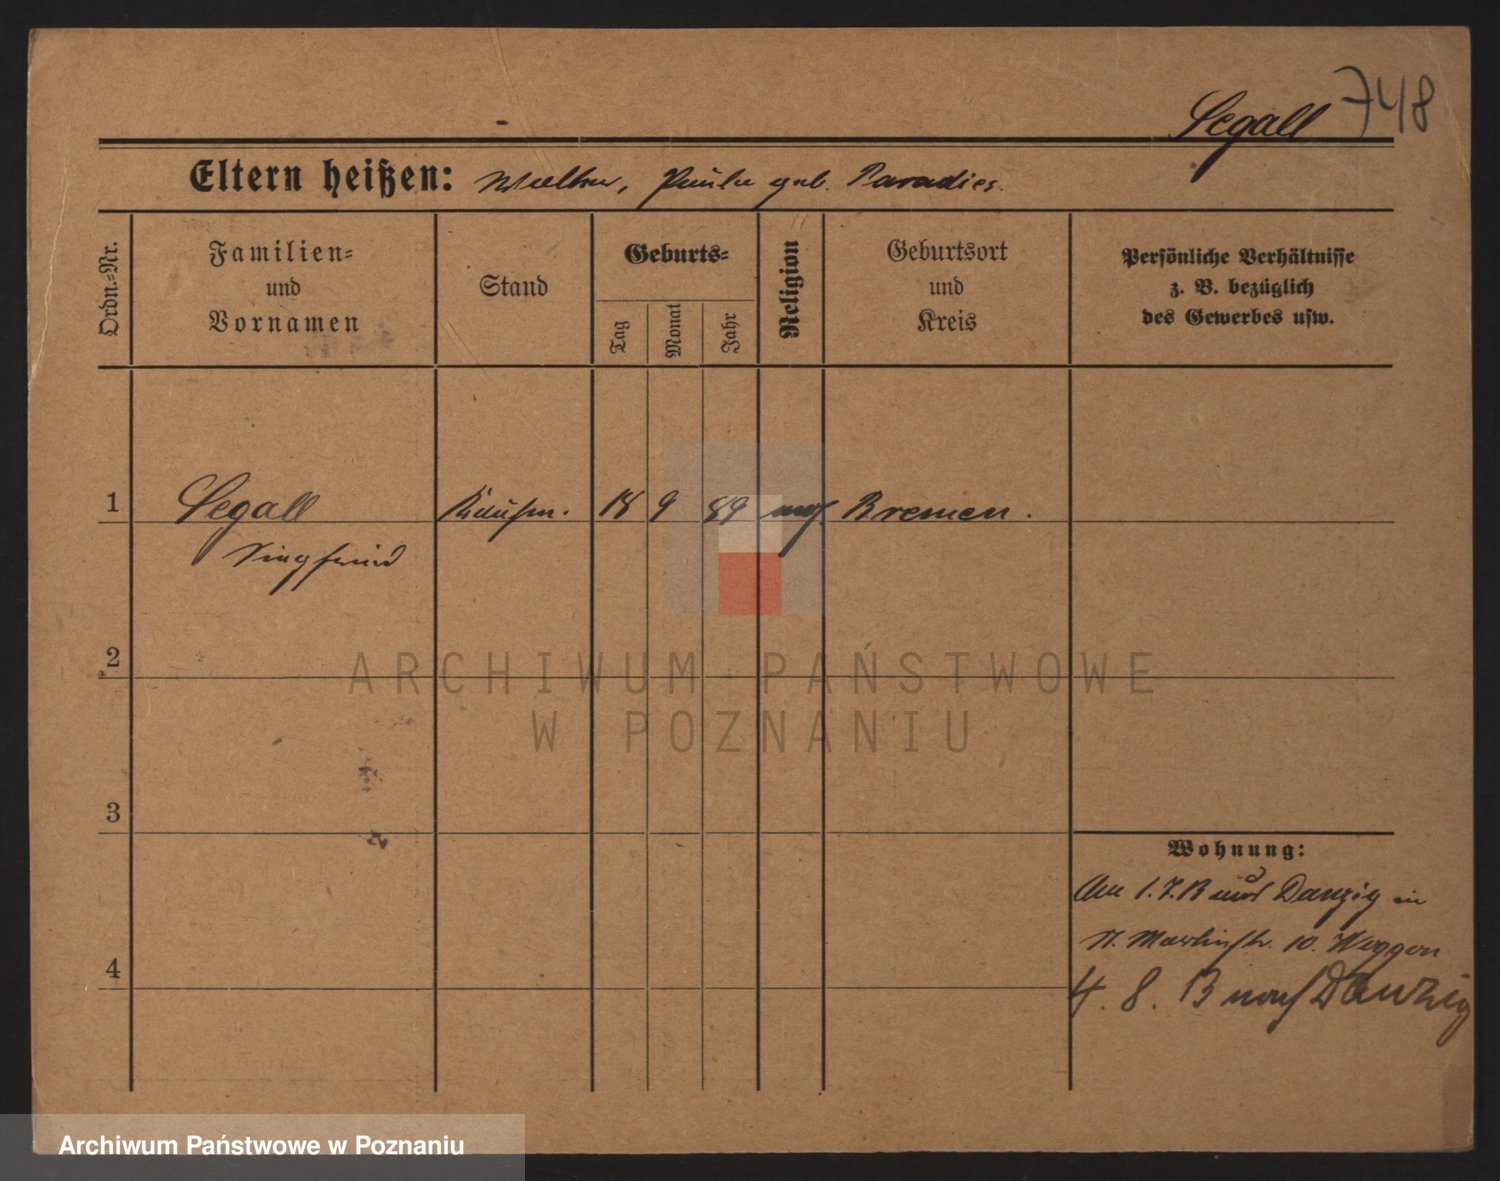 Segall 748
Eltern heißen: geb. Paradies.
Ordn.-Nr.
Familien-
und
Vornamen
Stand
Geburts-
Tag
Monat
Jahr
Religion
Geburtsort
und
Kreis
Persönliche Verhältnisse
z. B. bezüglich
des Gewerbes usw.
1 Segall Kaufm. 18 9 89 mos Bremen.
Siegfried
2
ARCHIWUM PAŃSTWOWE
W POZNANIU
3
Wohnung:
Am 1.7.13 aus Danzig in
St. Martinstr. 10.
4
4. 8. 13 nach Danzig
Archiwum Państwowe w Poznaniu